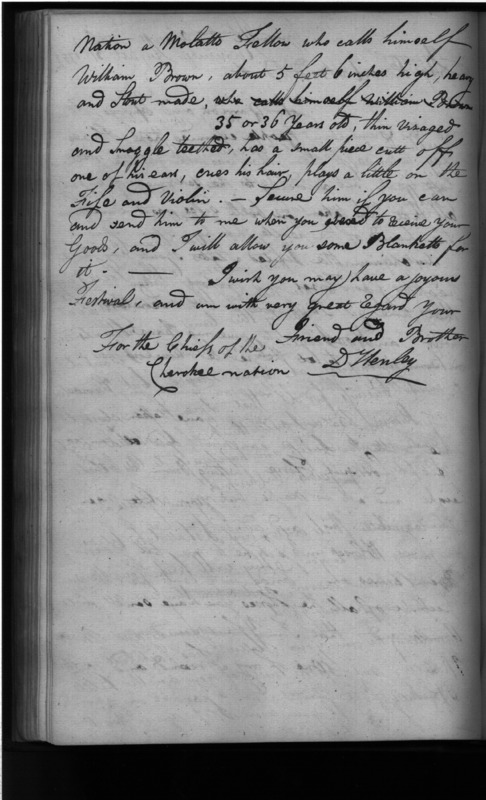 Nation a Molatto Fellow who calls himself
William Brown, about 5 feet 6 inches high, heavy
and Stout made, who calls himself William Brown
35 or 36 Years old, thin visaged
and Snaggle teethed, has a small piece cutt off
one of his ears, cues his hair, plays a little on the
Fife and Violin. — Secure him if you can
and send him to me when you send to receive your
Goods, and I will allow you some Blanketts for
it. — I wish you may have a joyous
Festival, and am with very great regard your
Friend and Brother
For the Chiefs of the
Cherokee nation D Henley